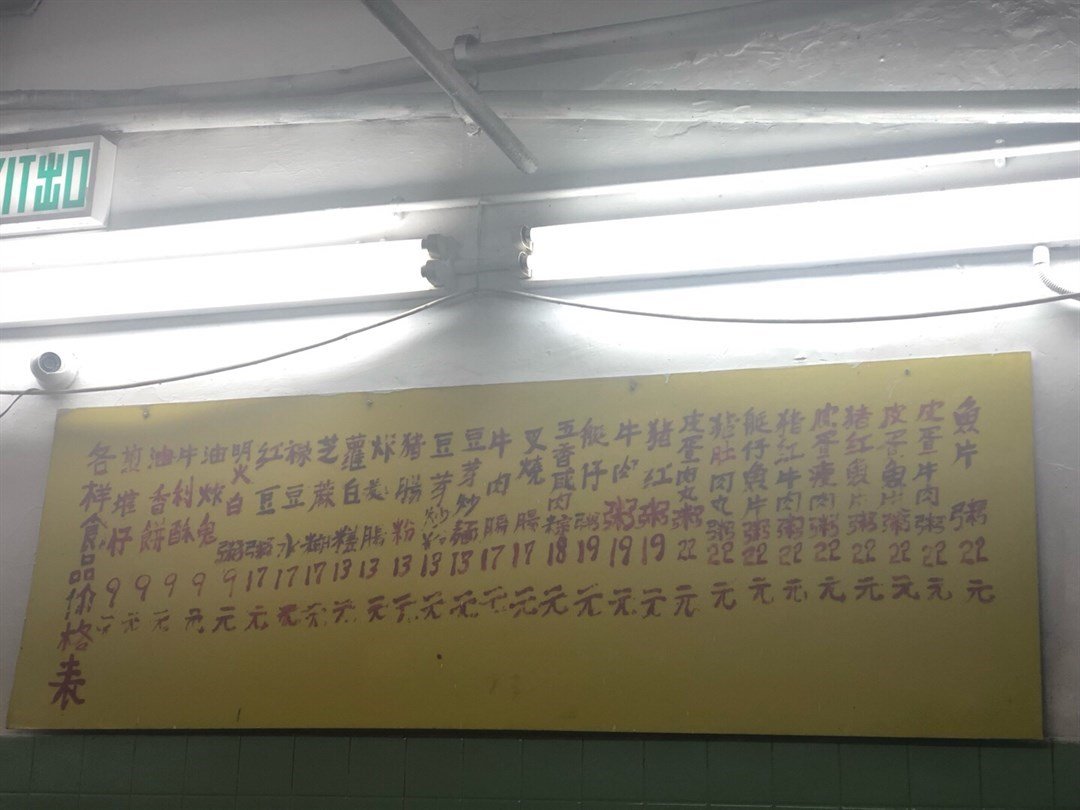 XIT出口
各样食品价格表
煎堆仔9元
油香餅9元
牛利酥9元
油炸鬼9元
明火白粥9元
红豆粥17元
綠豆水17元
芝蔴糊17元
蘿白糕13元
炸腸13元
猪腸粉13元
豆芽炒13元
豆芽炒麵13元
牛肉腸17元
叉燒腸17元
五香咸肉粽18元
艇仔粥19元
牛肉粥19元
猪红粥19元
皮蛋肉丸粥22元
猪肚肉丸粥22元
艇仔魚片粥22元
猪红牛肉粥22元
皮蛋瘦肉粥22元
猪红魚片粥22元
皮蛋魚片粥22元
皮蛋牛肉粥22元
魚片粥22元